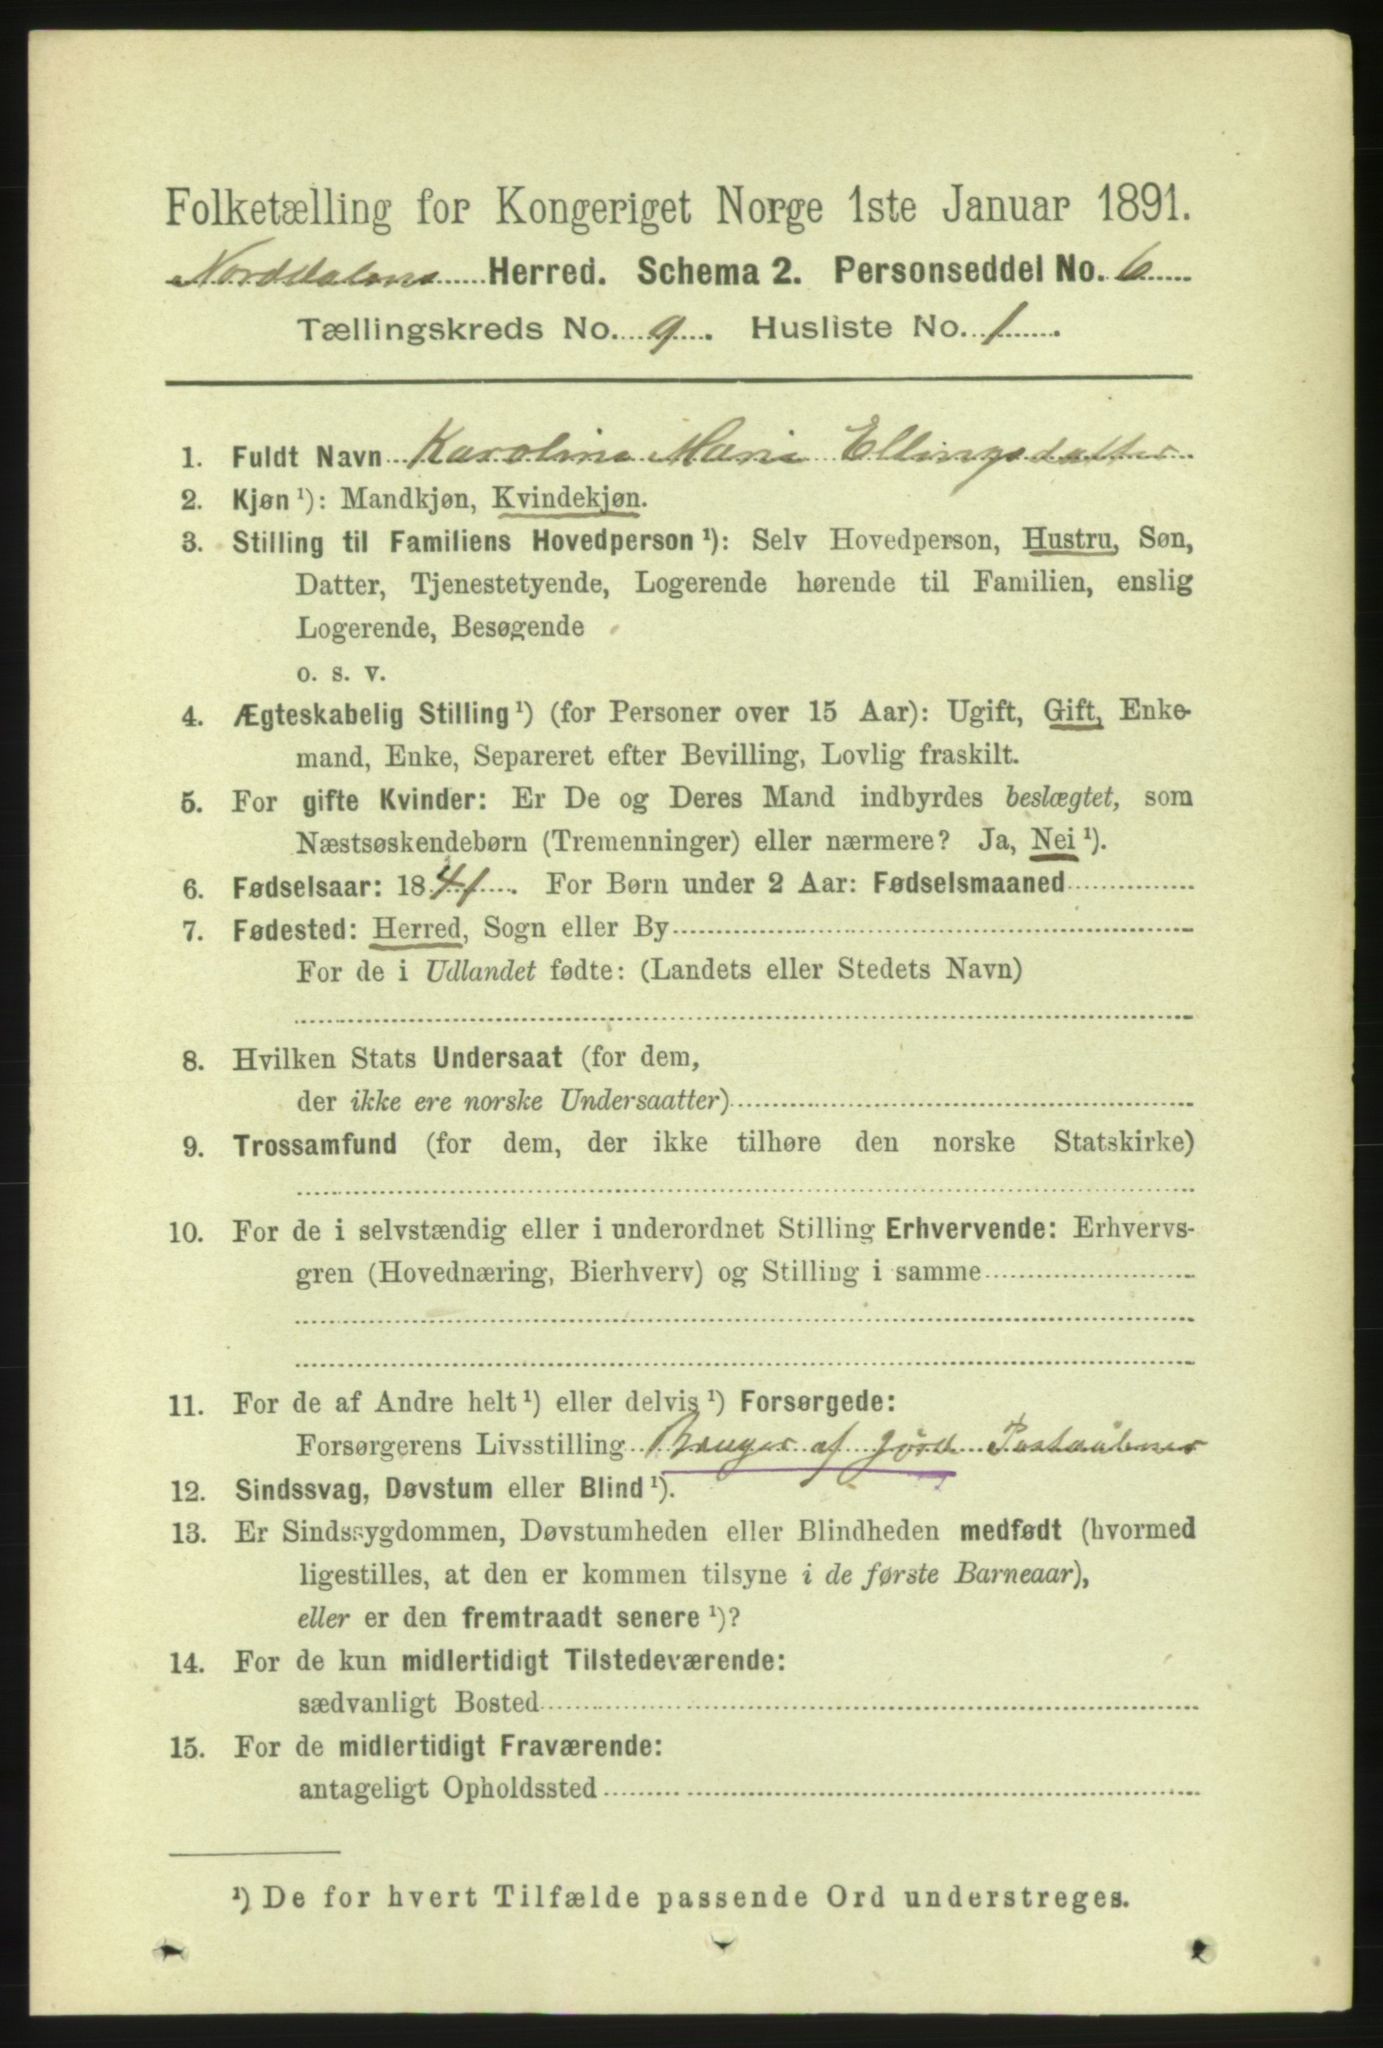 Folketælling for Kongeriget Norge 1ste Januar 1891.
Norddalens Herred. Schema 2. Personseddel No. 6
Tællingskreds No. 9. Husliste No. 1
1. Fuldt Navn Karoline Marie Ellingsdatter
2. Kjøn ¹): Mandkjøn, Kvindekjøn.
3. Stilling til Familiens Hovedperson ¹): Selv Hovedperson, Hustru, Søn,
Datter, Tjenestetyende, Logerende hørende til Familien, enslig
Logerende, Besøgende
o. s. v.
4. Ægteskabelig Stilling ¹) (for Personer over 15 Aar): Ugift, Gift, Enke-
mand, Enke, Separeret efter Bevilling, Lovlig fraskilt.
5. For gifte Kvinder: Er De og Deres Mand indbyrdes beslægtet, som
Næstsøskendebørn (Tremenninger) eller nærmere? Ja, Nei ¹).
6. Fødselsaar: 1841. For Børn under 2 Aar: Fødselsmaaned
7. Fødested: Herred, Sogn eller By
For de i Udlandet fødte: (Landets eller Stedets Navn)
8. Hvilken Stats Undersaat (for dem,
der ikke ere norske Undersaatter)
9. Trossamfund (for dem, der ikke tilhøre den norske Statskirke)
10. For de i selvstændig eller i underordnet Stilling Erhvervende: Erhvervs-
gren (Hovednæring, Bierhverv) og Stilling i samme
11. For de af Andre helt ¹) eller delvis ¹) Forsørgede:
Forsørgerens Livsstilling Bruger af Jord Postaabner
12. Sindssvag, Døvstum eller Blind ¹).
13. Er Sindssygdommen, Døvstumheden eller Blindheden medfødt (hvormed
ligestilles, at den er kommen tilsyne i de første Barneaar),
eller er den fremtraadt senere ¹)?
14. For de kun midlertidigt Tilstedeværende:
sædvanligt Bosted
15. For de midlertidigt Fraværende:
antageligt Opholdssted
¹) De for hvert Tilfælde passende Ord understreges.